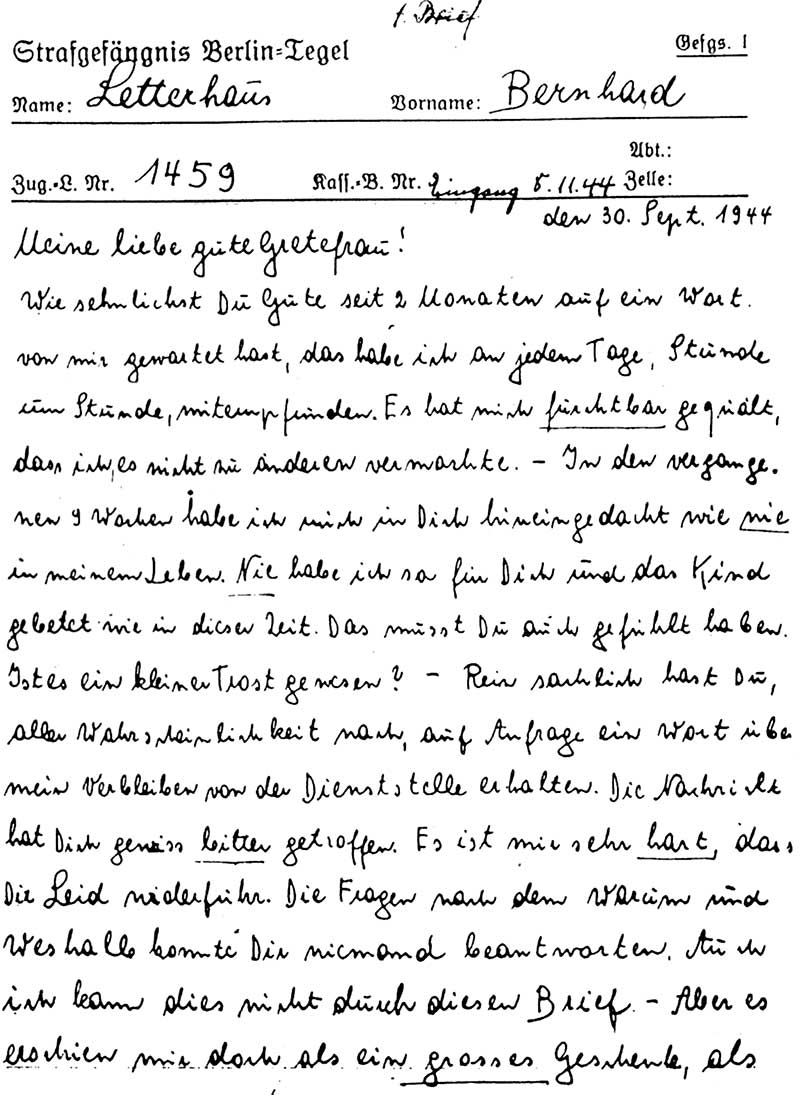 1. Brief
Strafgefängnis Berlin=Tegel
Gefgs. 1
Name: Letterhaus Vorname: Bernhard
Abt.:
Zug.=L. Nr. 1459 Kass.=B. Nr. Eingang 5.11.44 Zelle:
den 30. Sept. 1944
Meine liebe gute Gretefrau!
Wie sehnlichst Du Gute seit 2 Monaten auf ein Wort
von mir gewartet hast, das habe ich an jedem Tage, Stunde
um Stunde, mitempfunden. Es hat mich furchtbar gequält,
dass ich es nicht zu änderen vermochte. – In den vergange-
nen 9 Wochen habe ich mich in Dich hineingedacht wie nie
in meinem Leben. Nie habe ich so für Dich und das Kind
gebetet wie in dieser Zeit. Das musst Du auch gefühlt haben.
Ist es ein kleiner Trost gewesen? – Rein sachlich hast Du,
aller Wahrscheinlichkeit nach, auf Anfrage ein Wort über
mein Verbleiben von der Dienststelle erhalten. Die Nachricht
hat Dich gewiss bitter getroffen. Es ist mir sehr hart, dass
Dir Leid widerfuhr. Die Fragen nach dem Warum und
Weshalb konnte Dir niemand beantworten. Auch
ich kann dies nicht durch diesen Brief. – Aber es
erschien mir doch als ein grosses Geschenk, als